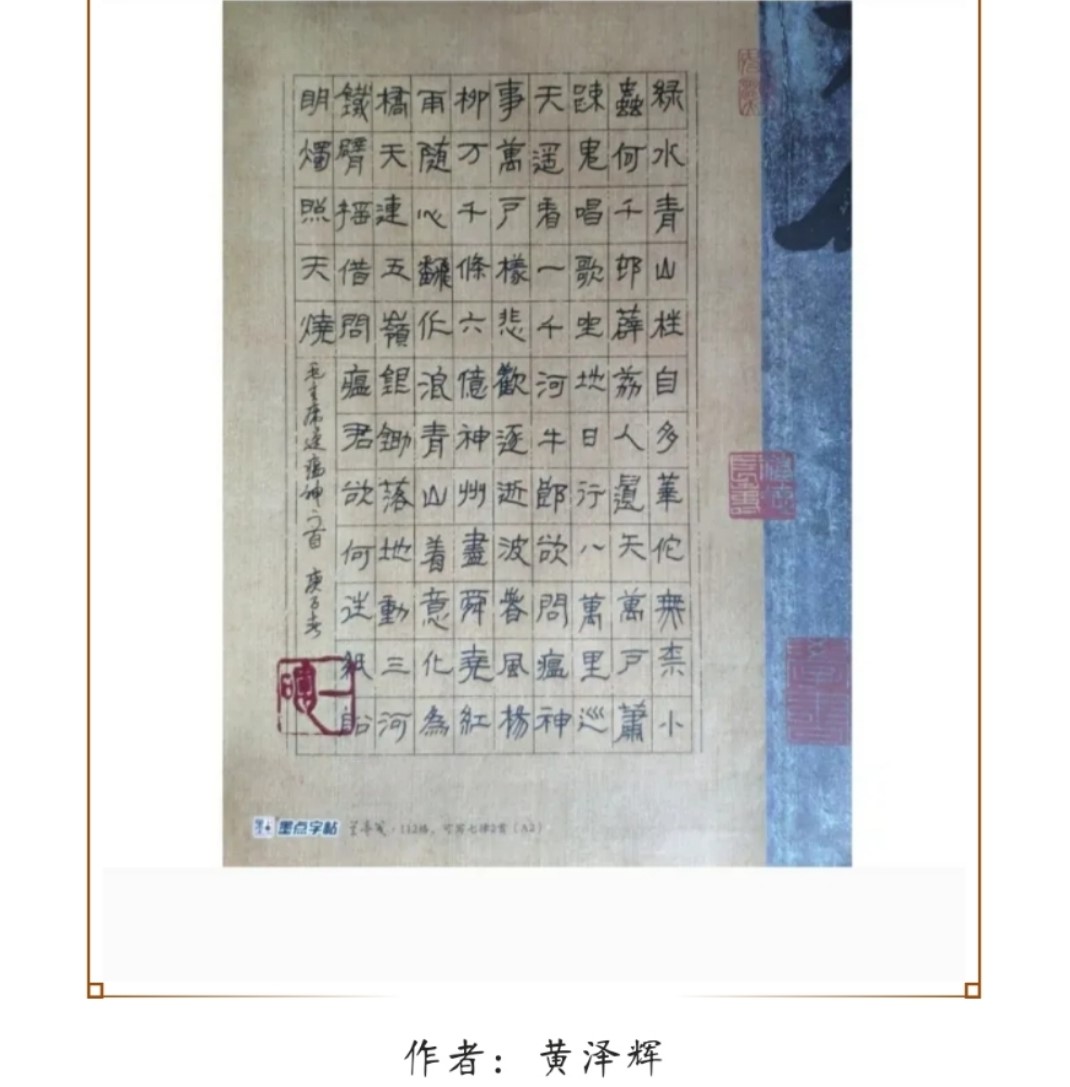 綠水青山枉自多華佗無柰小
蟲何千邨薜荔人遺矢萬戶蕭
踈鬼唱歌坐地日行八萬里巡
天遥看一千河牛郎欲問瘟神
事萬戶樣悲歡逐逝波春風楊
柳万千條六億神州盡舜堯紅
雨隨心翻作浪青山着意化為
橋天連五嶺銀鋤落地動三河
鐵臂摇借問瘟君欲何往紙船
明燭照天燒
毛主席送瘟神二首 庚子春
墨点字帖 兰亭笺·112格，可写七律2首（A2）
作者：黄泽辉